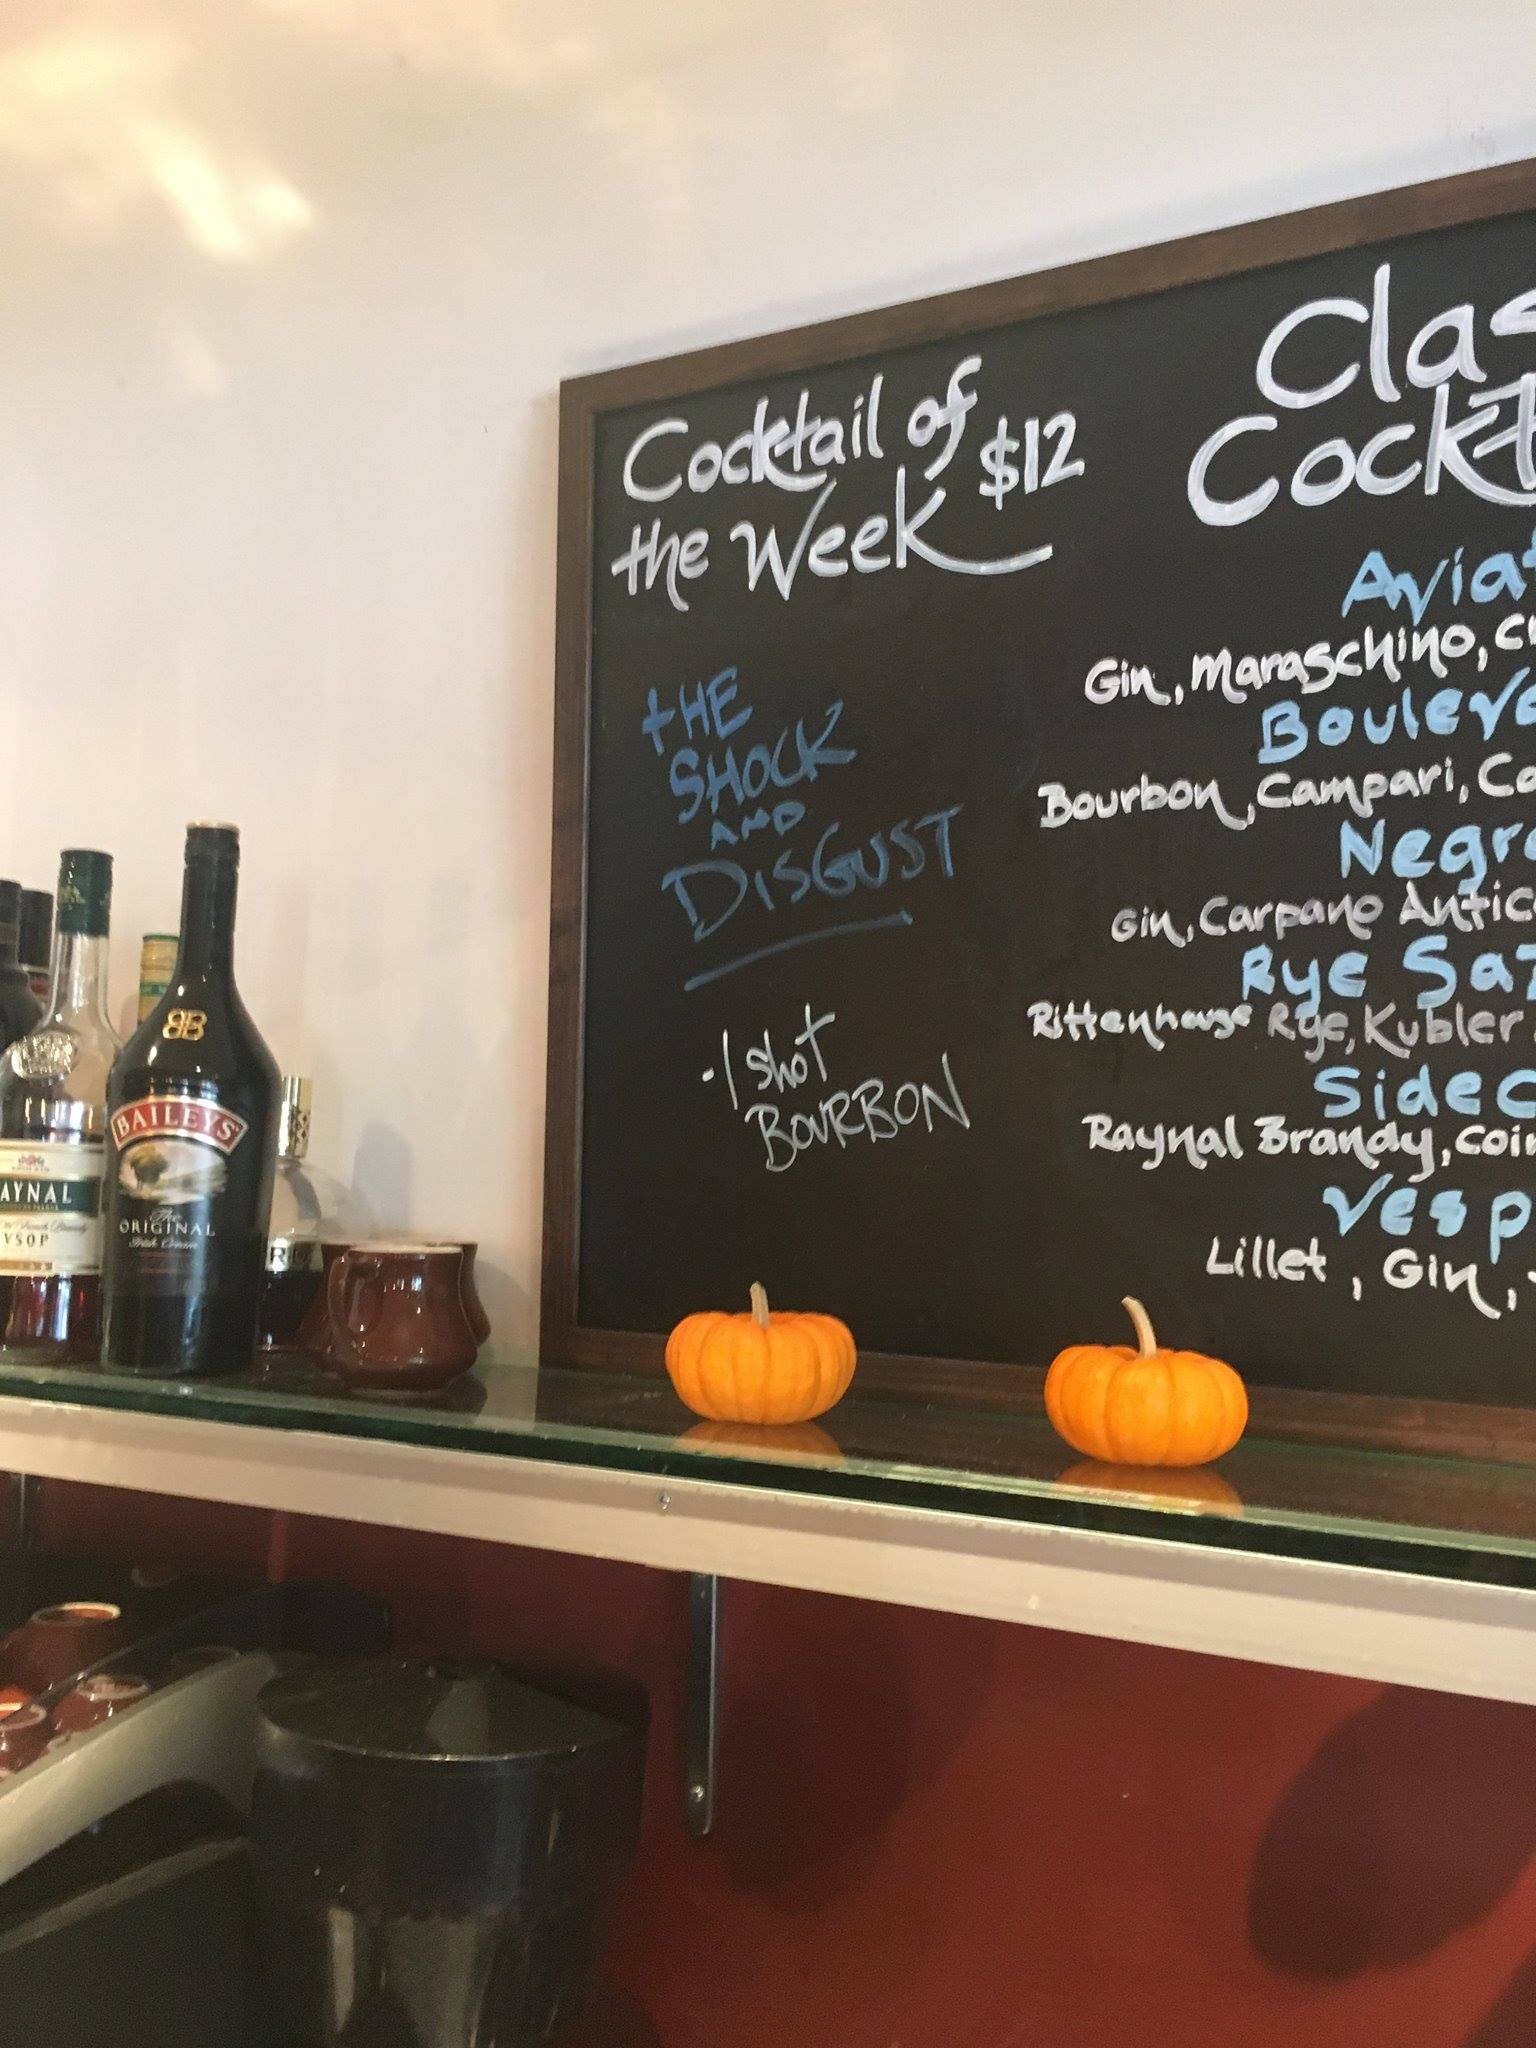 Cocktail of
the Week $12
tHE
SHOCK
AND
DISGUST
- 1 shot
BOURBON
Clas
Cockt
Aviat
Gin, Maraschino, Cr
Bouleva
Bourbon, Campari, Ca
Negro
Gin, Carpano Antica
Rye Saz
Rittenhouse Rye, Kubler
Sidec
Raynal Brandy, Coin
Vesp
Lillet, Gin,
AYNAL
VSOP
BAILEYS
The
ORIGINAL
Irish Cream